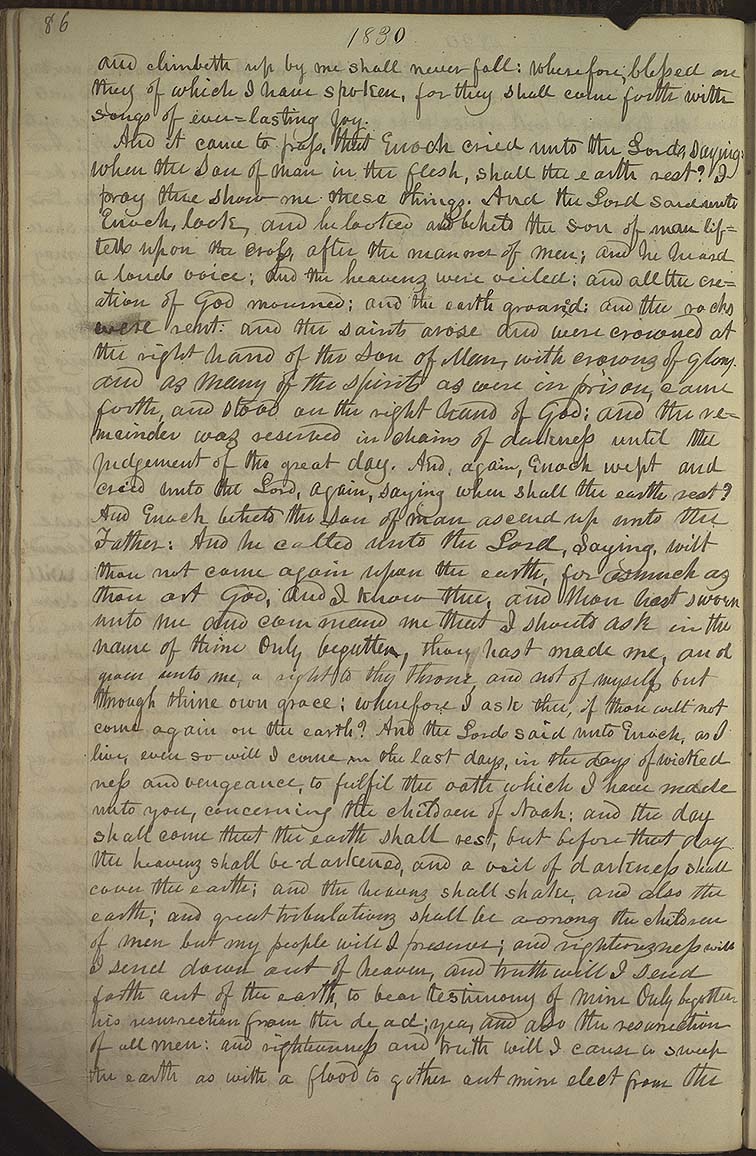 86
1830
and climbeth up by me shall never fall: wherefore, blessed are
they of which I have spoken, for they shall come forth with
songs of ever=lasting joy.
And it came to pass, that Enoch cried unto the Lord, saying:
when the Son of man in the flesh, shall the earth rest? I
pray thee show me these things. And the Lord said unto
Enoch, look, and he looked and beheld the son of man lif=
ted upon the cross, after the manner of men; and he heard
a loud voice; and the heavenz were veiled; and all the cre=
ation of God mourned; and the earth groaned: and the rocks
were rent: and the saints arose and were crowned at
the right hand of the Son of Man, with crownz of glory.
and as many of the spirits as were in prison, came
forth, and stood on the right hand of God: and the re=
mainder waz reserved in chains of darkness until the
judgement of the great day. And, again, Enoch wept and
cried unto the Lord, again, saying when shall the earth rest?
And Enoch beheld the Son of man ascend up unto the
Father: And he called unto the Lord, saying, will
thou not come again upon the earth, for asmuch az
thou art God, and I know thee, and thou hast sworn
unto me and commanded me that I should ask in the
name of thine Only begotten, thou hast made me, and
given unto me, a right to thy throne, and not of myself, but
through thine own grace; wherefore I ask thee, if thou wilt not
come again on the earth? And the Lord said unto Enoch, as I
live, even so will I come in the last days, in the days of wicked
ness and vengeance, to fulfil the oath which I have made
unto you, concerning the children of Noah; and the day
shall come that the earth shall rest, but before that day
the heavenz shall be darkened, and a veil of darkness shall
cover the earth; and the heavenz shall shake, and also the
earth; and great tribulationz shall be among the children
of men but my people will I preserve; and righteouzness will
I send down out of heaven, and truth will I send
forth out of the earth, to bear testimony of mine Only begotten
his resurrection from the dead; yea, and also the resurrection
of all men: and righteousness and truth will I cause to sweep
the earth as with a flood to gather out mine elect from the